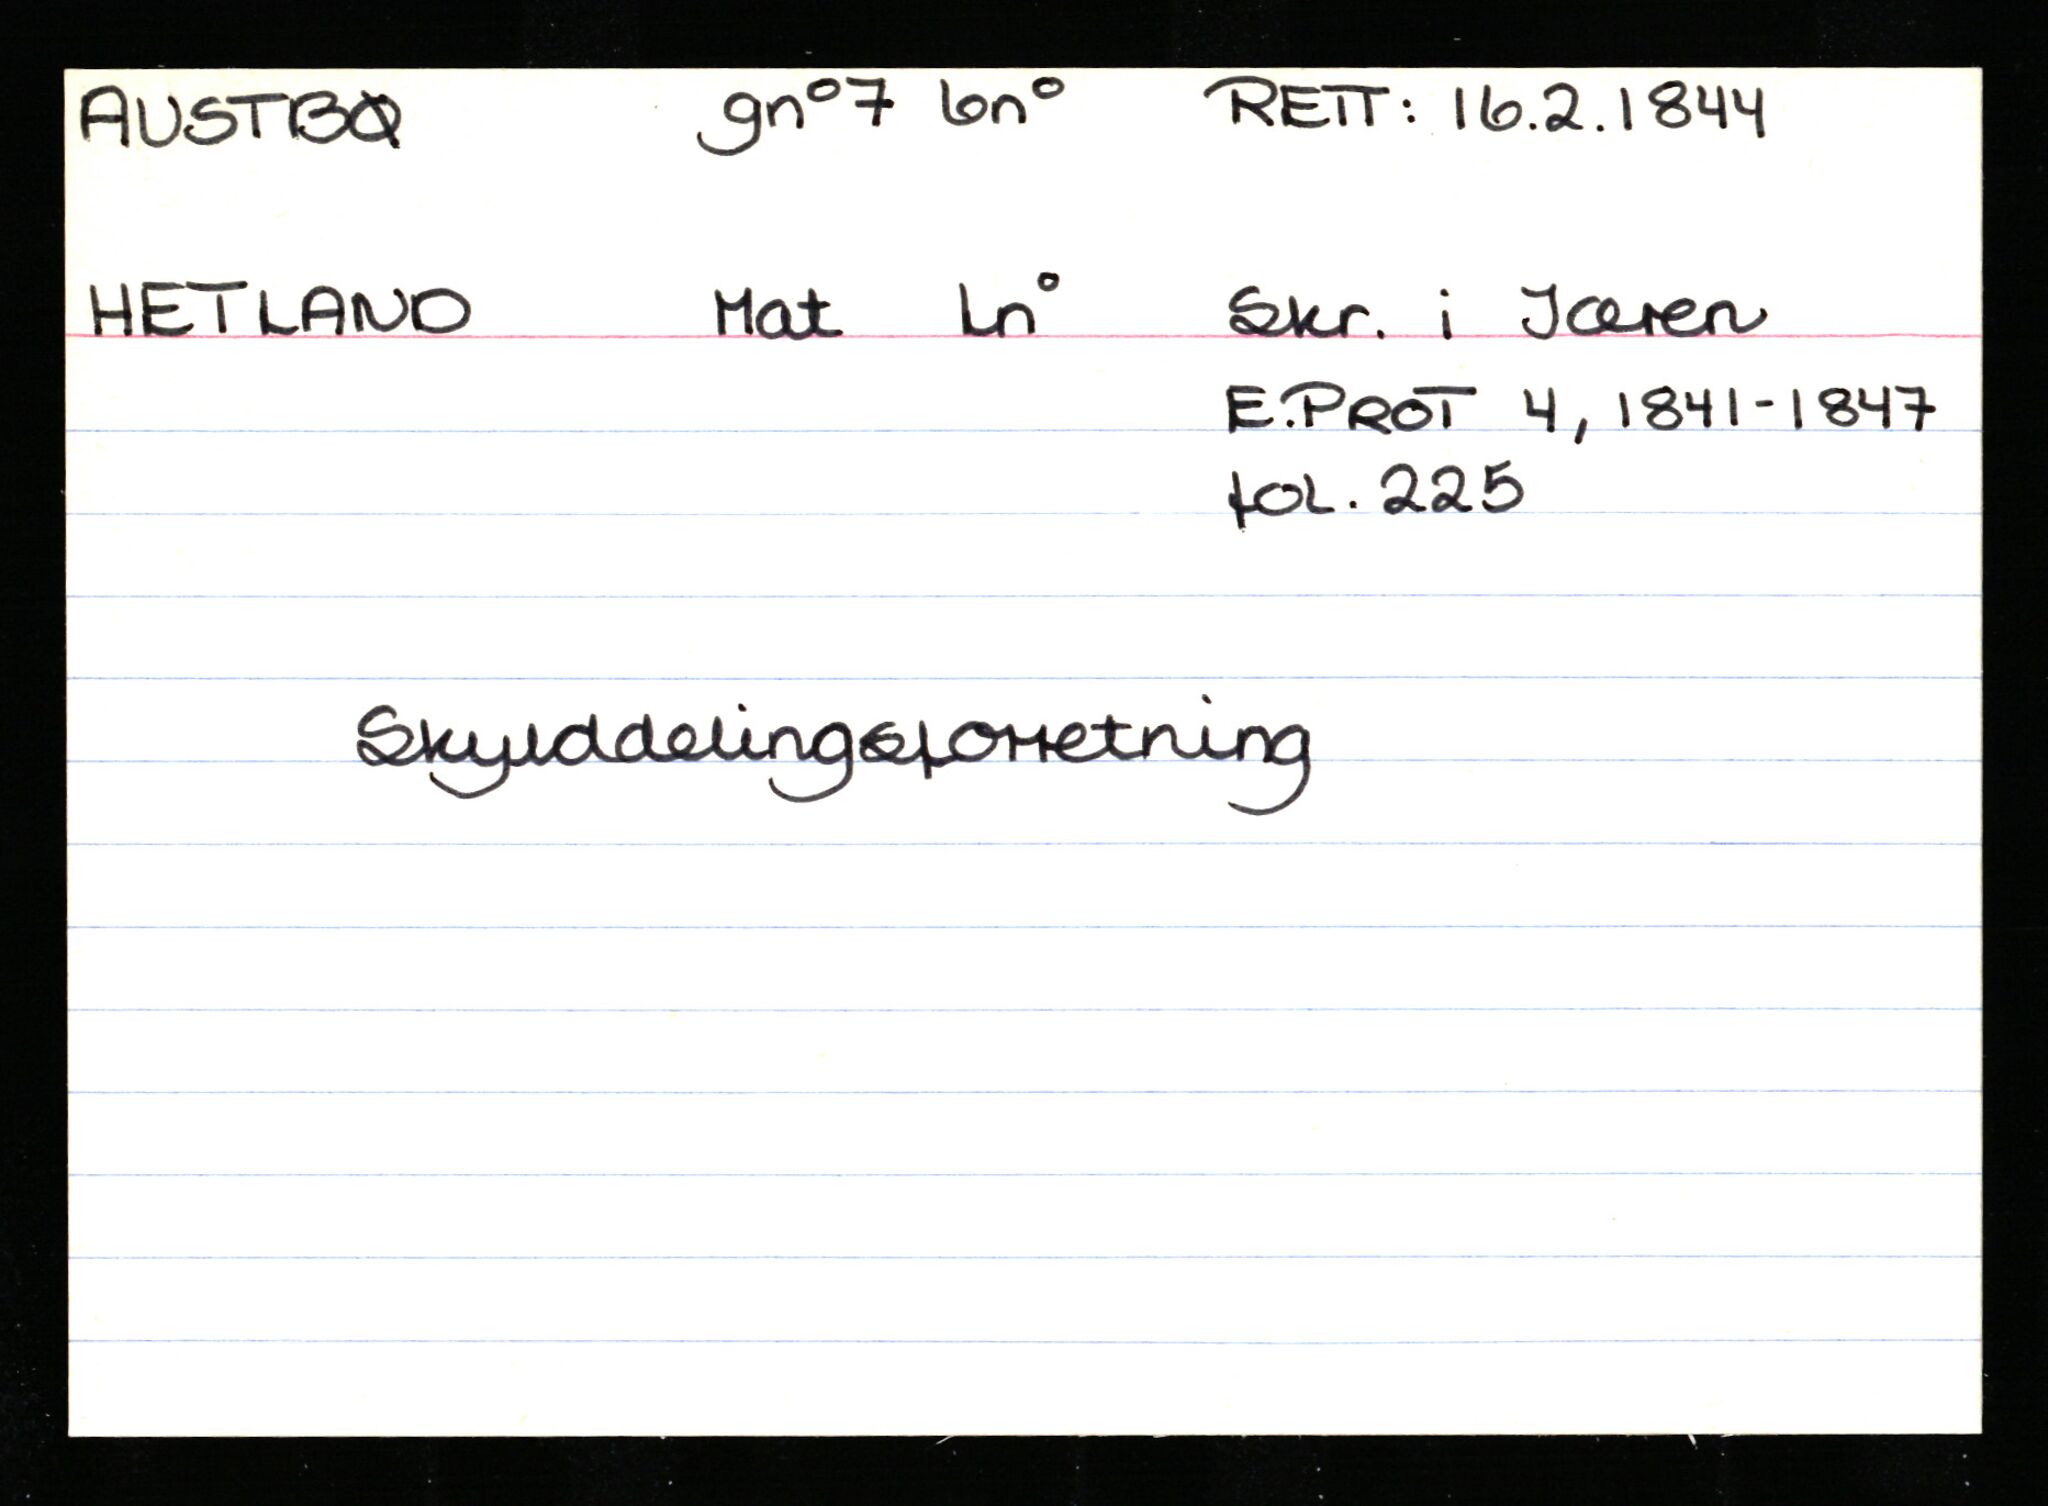 AUSTBØ gn° 7 bn° RETT: 16.2.1844
HETLAND Mat Ln° Skr. i Jæren
E.PROT 4, 1841-1847
fOL. 225
Skylddelingsforretning